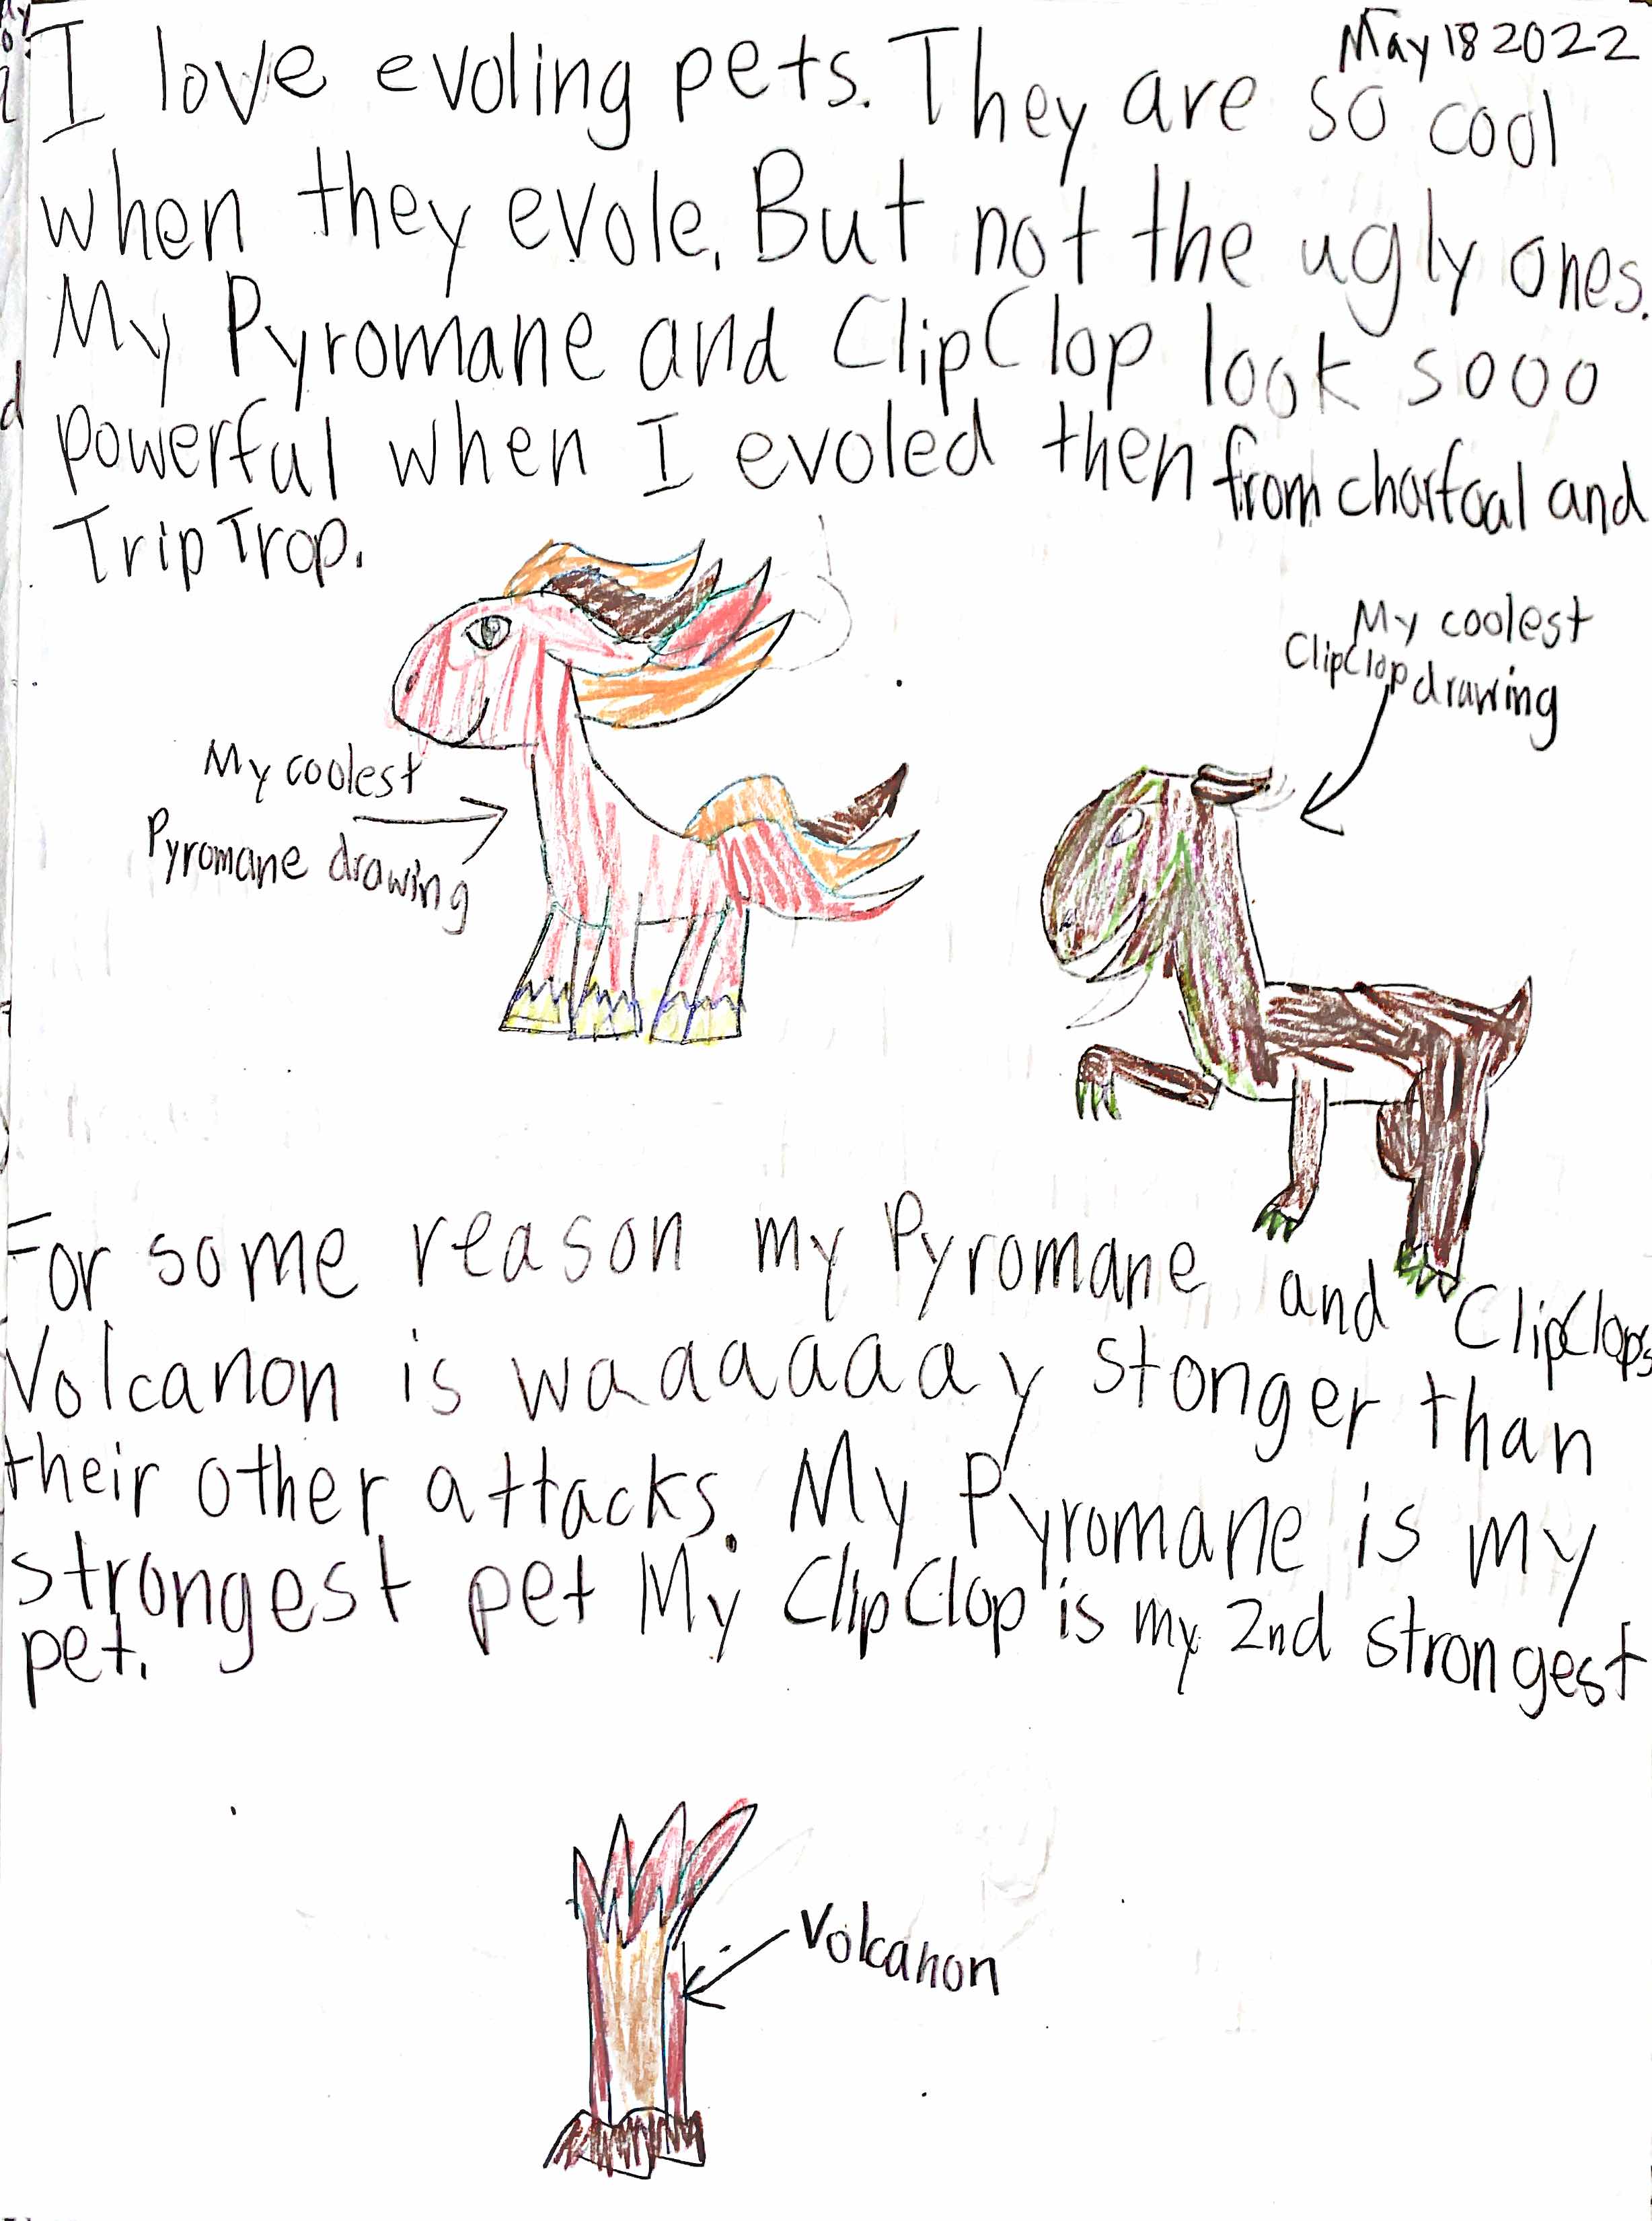 May 18 2022
I love evoling pets. They are so cool
when they evole. But not the ugly ones.
My Pyromane and ClipClop look sooo
powerful when I evoled then from charfoal and
Trip Trop.
My coolest
ClipClop drawing
My coolest
Pyromane drawing
For some reason my Pyromane and ClipClops
Volcanon is waaaaaay stonger than
their other attacks. My Pyromane is my
strongest pet My ClipClop is my 2nd strongest
pet.
Volcanon